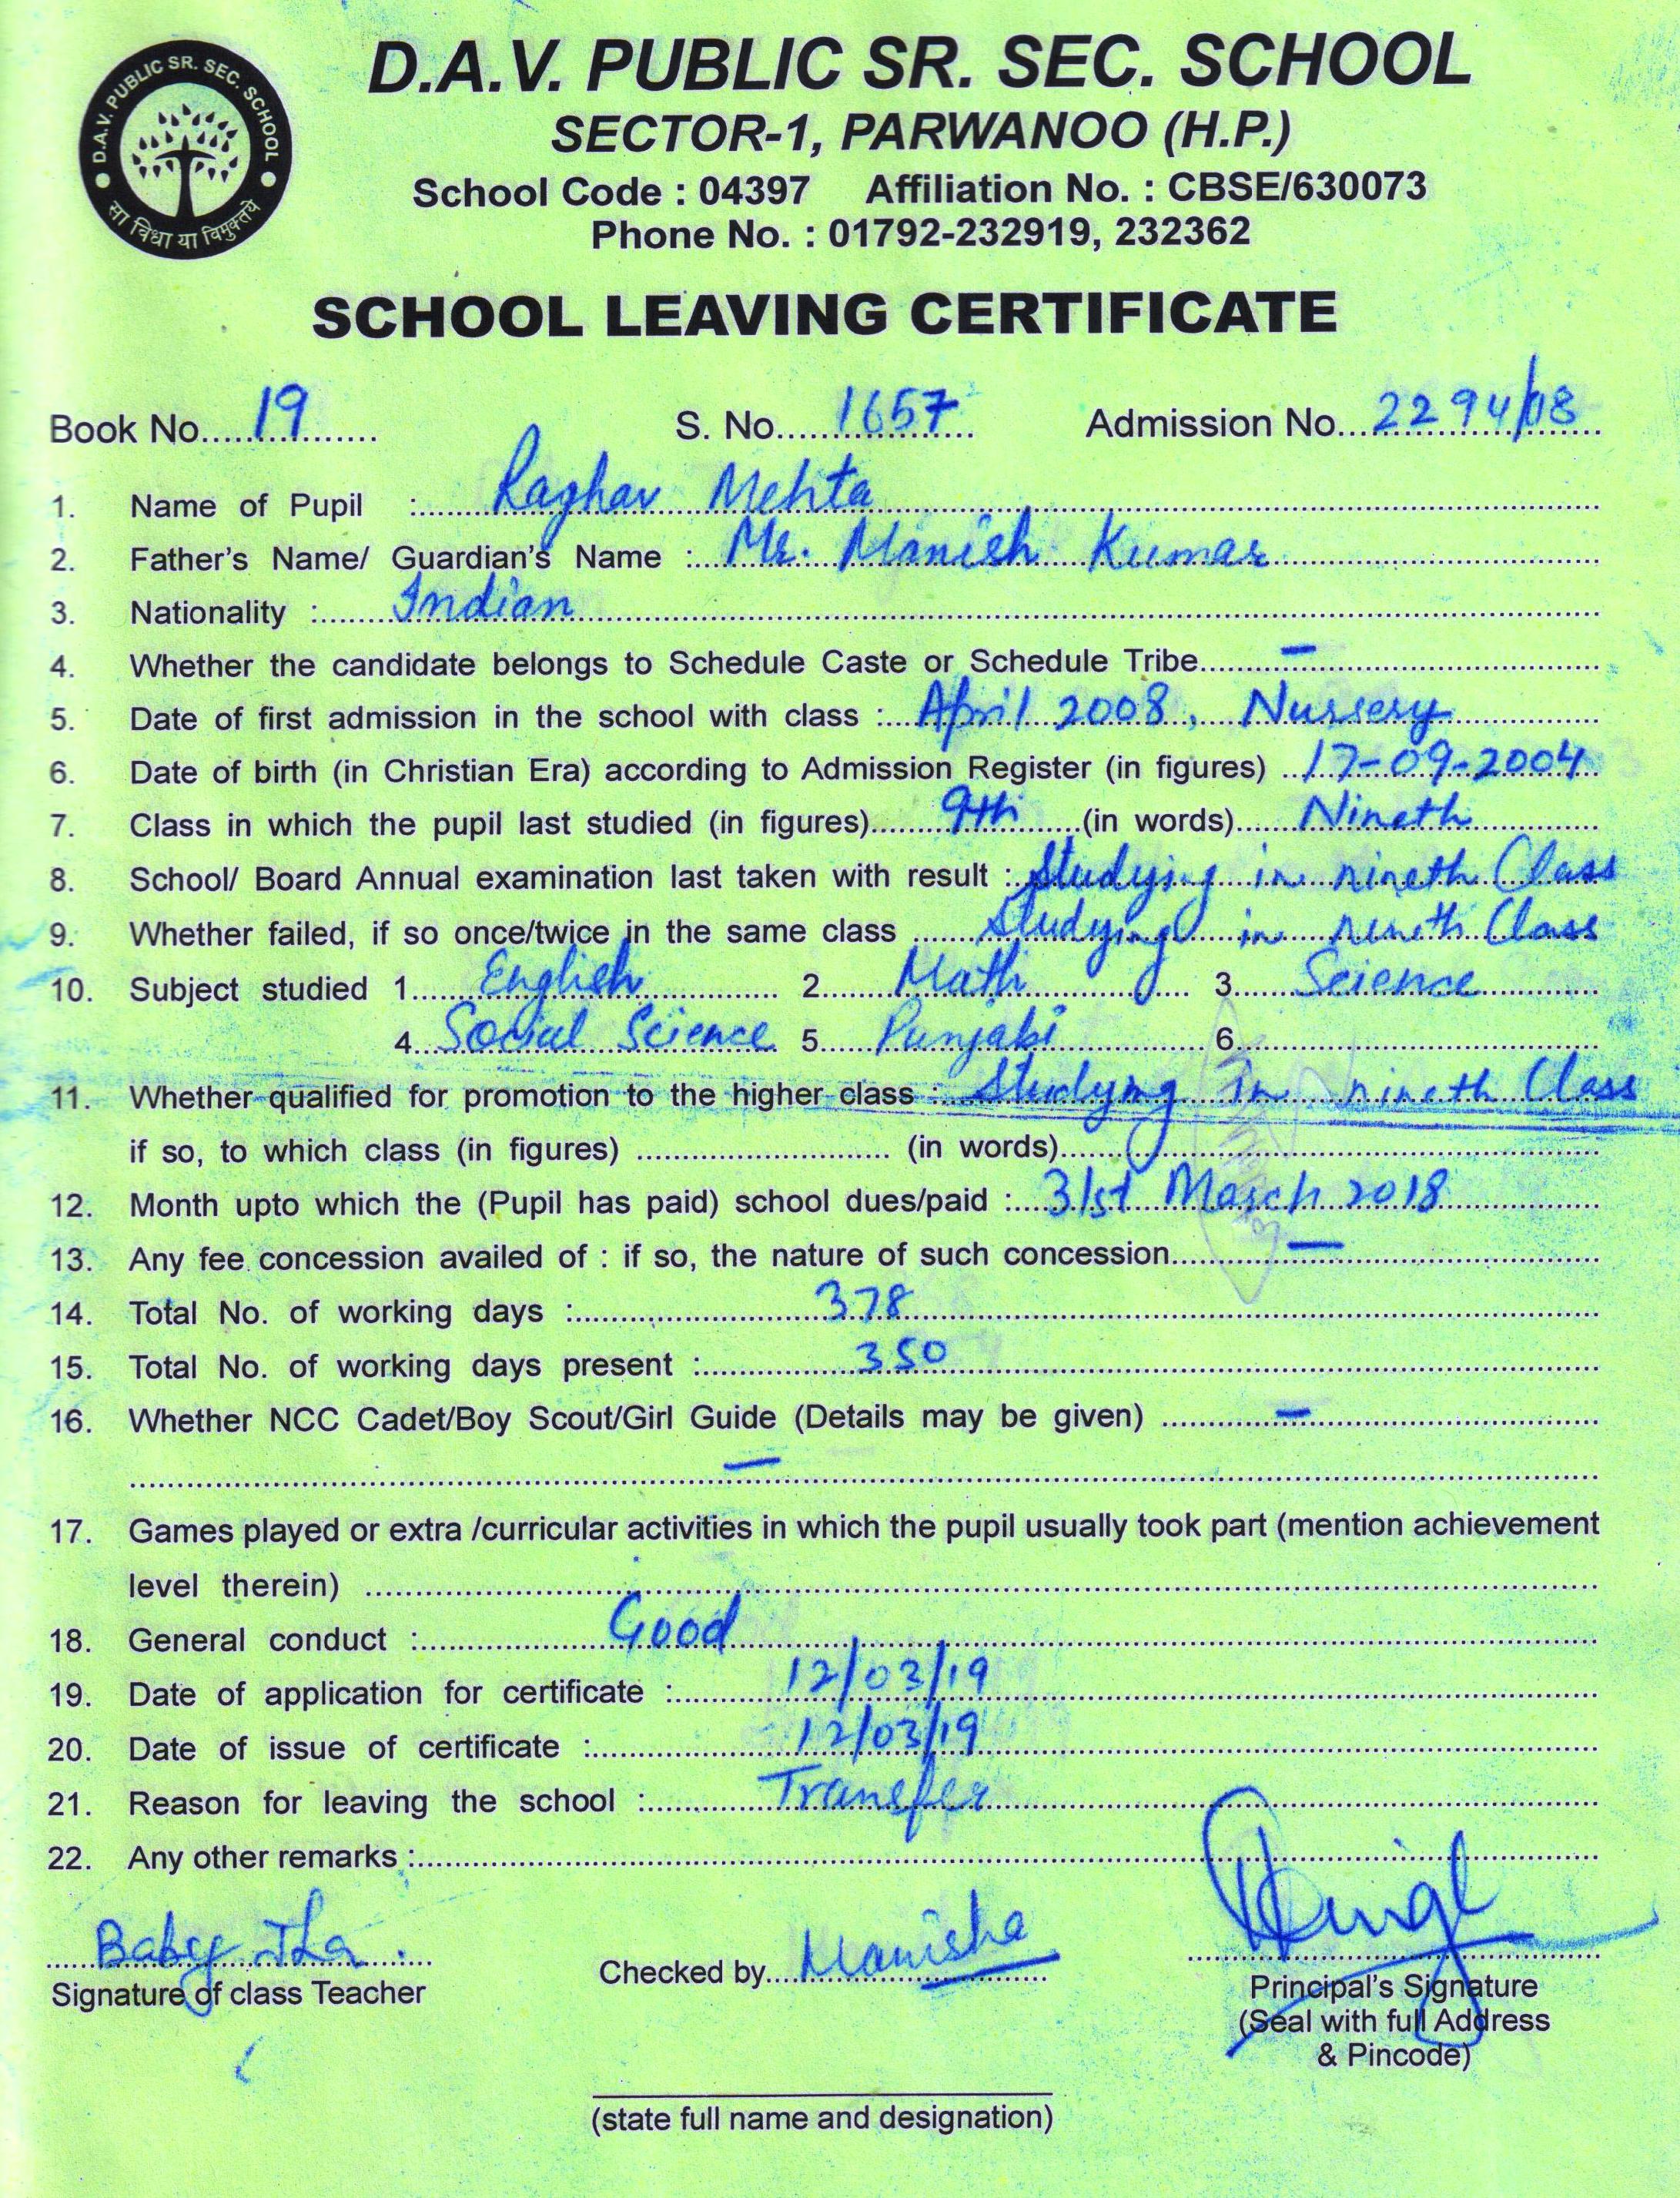 D.A.V. PUBLIC SR. SEC. SCHOOL
D.A.V. PUBLIC SR. SEC. SCHOOL
सा विद्या या विमुक्तये
SECTOR-1, PARWANOO (H.P.)
School Code : 04397 Affiliation No. : CBSE/630073
Phone No. : 01792-232919, 232362
SCHOOL LEAVING CERTIFICATE
Book No. 19 S. No. 1657 Admission No. 2294/08
1. Name of Pupil : Raghav Mehta
2. Father's Name/ Guardian's Name : Mr. Manish Kumar
3. Nationality : Indian
4. Whether the candidate belongs to Schedule Caste or Schedule Tribe –
5. Date of first admission in the school with class : April 2008, Nursery
6. Date of birth (in Christian Era) according to Admission Register (in figures) 17-09-2004
7. Class in which the pupil last studied (in figures) 9th (in words) Nineth
8. School/ Board Annual examination last taken with result : Studying in nineth Class
9. Whether failed, if so once/twice in the same class Studying in nineth Class
10. Subject studied 1 English 2 Math 3 Science
4 Social Science 5 Punjabi 6
11. Whether qualified for promotion to the higher class : Studying in nineth Class
if so, to which class (in figures) (in words)
12. Month upto which the (Pupil has paid) school dues/paid : 31st March 2018
13. Any fee concession availed of : if so, the nature of such concession –
14. Total No. of working days : 378
15. Total No. of working days present : 350
16. Whether NCC Cadet/Boy Scout/Girl Guide (Details may be given) –
–
17. Games played or extra /curricular activities in which the pupil usually took part (mention achievement
level therein)
18. General conduct : Good
19. Date of application for certificate : 12/03/19
20. Date of issue of certificate : 12/03/19
21. Reason for leaving the school : Transfer
22. Any other remarks :
Baby Jha.
Signature of class Teacher
Checked by Manisha
Principal's Signature
(Seal with full Address
& Pincode)
(state full name and designation)